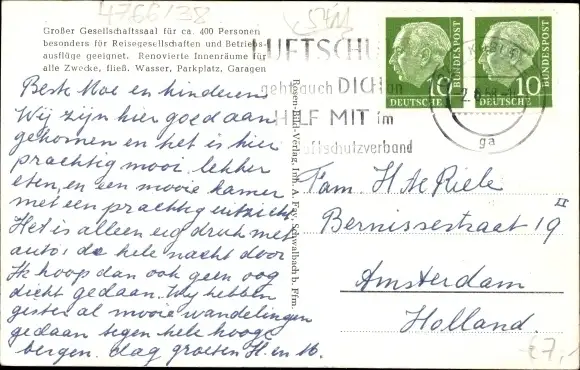 4766/38
Großer Gesellschaftssaal für ca. 400 Personen
besonders für Reisegesellschaften und Betriebs-
ausflüge geeignet. Renovierte Innenräume für
alle Zwecke, fließ. Wasser, Parkplatz, Garagen
Beste Moe en kinderen
Wij zijn hier goed aan
gekomen en het is hier
prachtig mooi, lekker
eten, en een mooie kamer
met een prachtig uitzicht
Het is alleen erg druk met
auto's de hele nacht door
Ik hoop dan ook geen oog
dicht gedaan. Wij hebben
gister al mooie wandelingen
gedaan tegen hele hooge
bergen. dag groeten H. en M.
Rosen-Bild-Verlag, Inh. A. Fay, Schwalbach b. Ffm.
LUFTSCHU
geht auch DICH an
HILF MIT im
Luftschutzverband
DEUTSCHE BUNDESPOST
10
DEUTSCHE BUNDESPOST
10
ga
Fam. H te Riele
Bernissestraat 19 II
Amsterdam
Holland.
€7,-